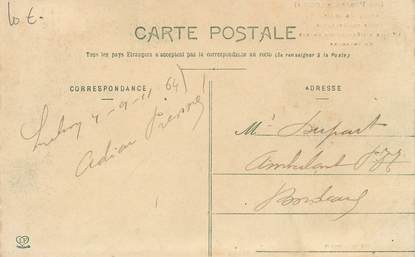 b. t.
CARTE POSTALE
Tous les pays Etrangers n'acceptent pas la correspondance au recto (Se renseigner à la Poste)
CORRESPONDANCE
ADRESSE
4-9-11 (64)
Mr Dupart
Ambulant
Bordeaux